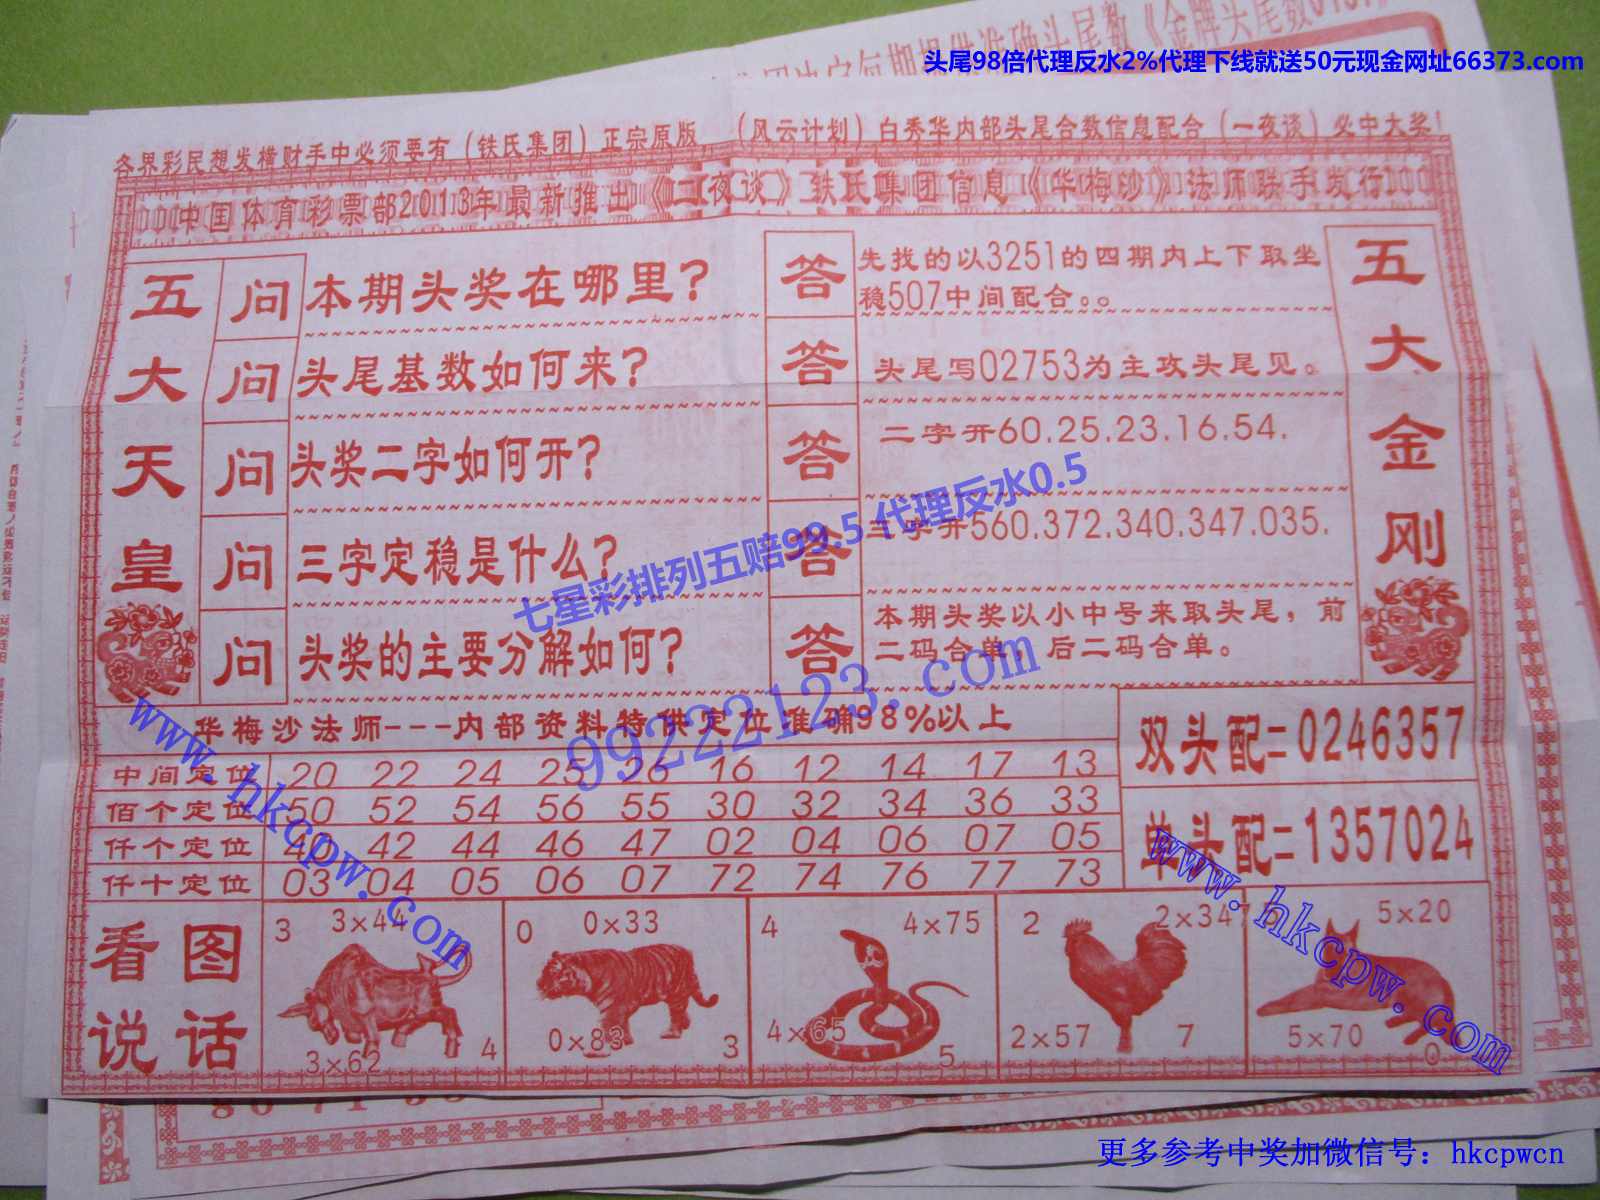 头尾98倍代理反水2%代理下线就送50元现金网址66373.com
各界彩民想发横财手中必须要有（铁氏集团）正宗原版，（风云计划）白秀华内部头尾合数信息配合（一夜谈）必中大奖！
中国体育彩票部2013年最新推出《二夜谈》铁氏集团信息《华梅沙》法师联手发行
五大天皇
问 本期头奖在哪里？
答 先找的以3251的四期内上下取坐
稳507中间配合。。
问 头尾基数如何来？
答 头尾写02753为主攻头尾见。
问 头奖二字如何开？
答 二字开60.25.23.16.54.
问 三字定稳是什么？
答 三字开560.372.340.347.035.
问 头奖的主要分解如何？
答 本期头奖以小中号来取头尾，前
二码合单，后二码合单。
五大金刚
七星彩排列五赔99.5代理反水0.5
99222123.com
华梅沙法师---内部资料特供定位准确98%以上
中间定位 20 22 24 25 26 16 12 14 17 13
佰个定位 50 52 54 56 55 30 32 34 36 33
仟个定位 40 42 44 46 47 02 04 06 07 05
仟十定位 03 04 05 06 07 72 74 76 77 73
双头配=0246357
单头配=1357024
www.hkcpw.com
www.hkcpw.com
看图
说话
3 3×44
3×62 4
0 0×33
0×83 3
4 4×75
4×65 5
2 2×347
2×57 7
5×20
5×70 0
更多参考中奖加微信号：hkcpwcn